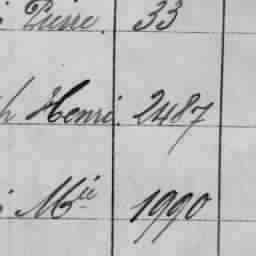 Pierre. 33
h Henri. 2487
i M^ie 1990